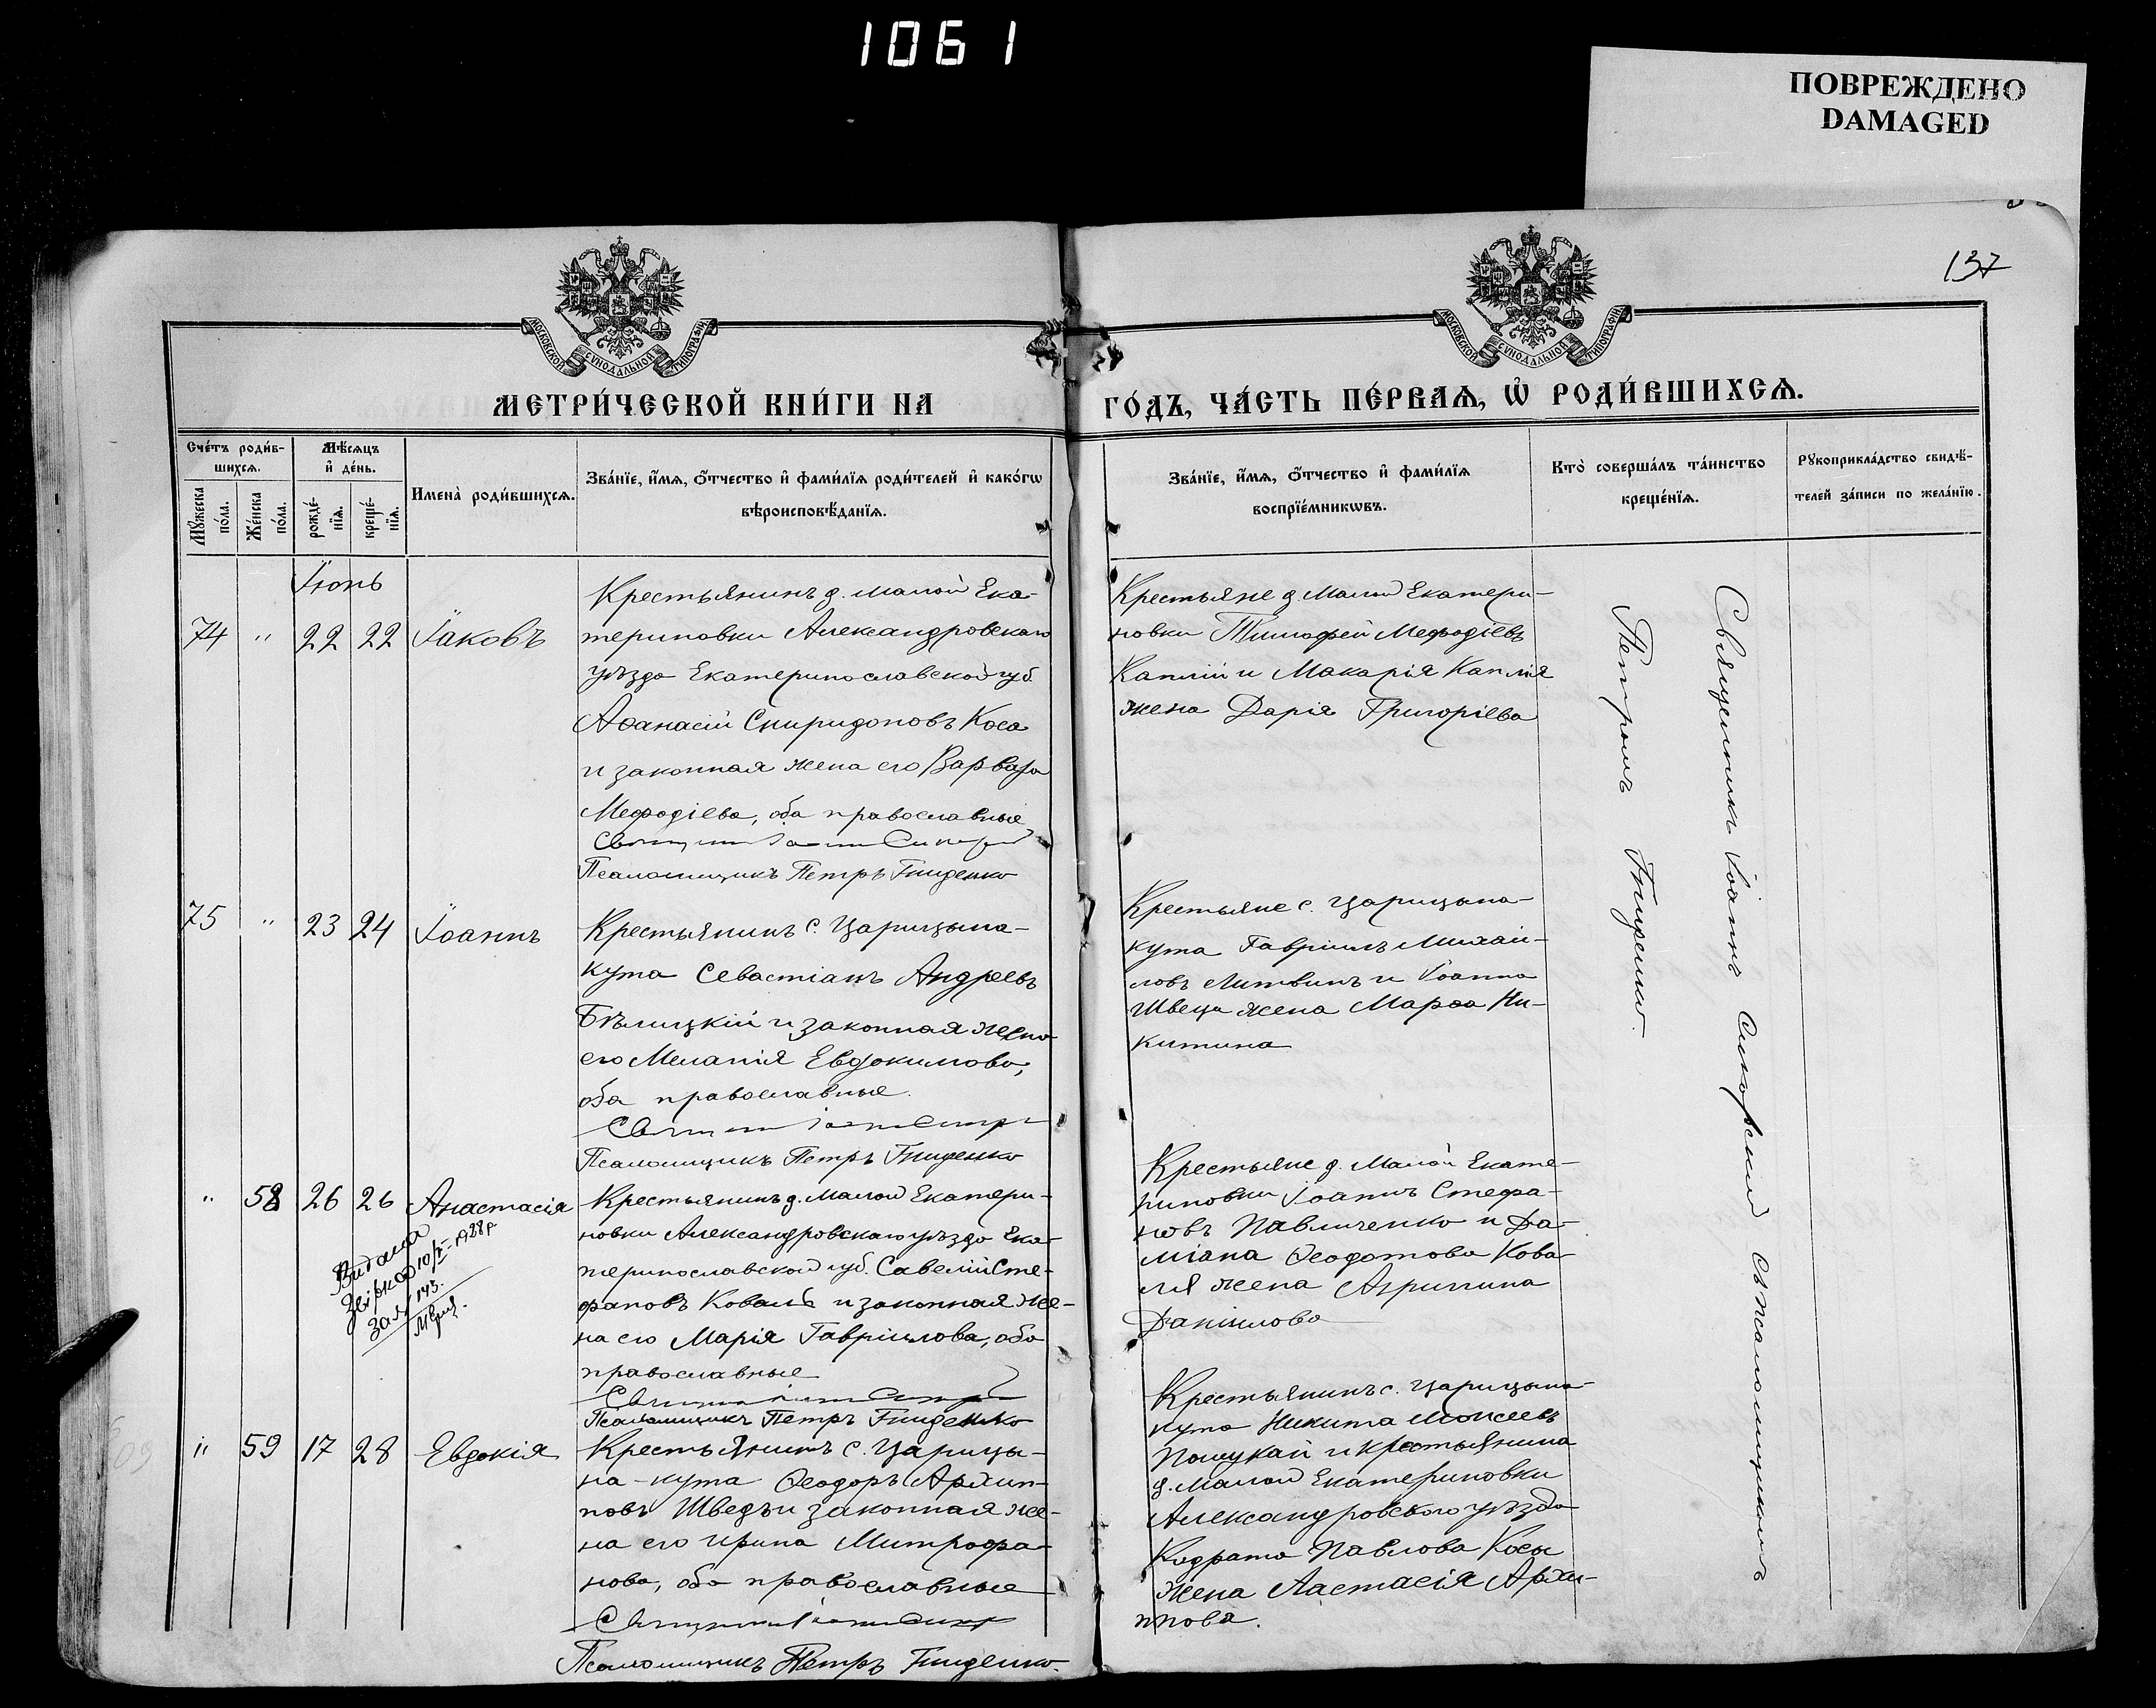 1061
ПОВРЕЖДЕНО
DAMAGED
137
МОСКОВСКОЙ СѴНОДАЛЬНОЙ ТИПОГРАФІИ
МОСКОВСКОЙ СѴНОДАЛЬНОЙ ТИПОГРАФІИ
МЕТРИ́ЧЕСКОЙ КНИ́ГИ НА
ГО́ДЪ, ЧА́СТЬ ПЕ́РВАѦ, Ѡ҆ РОДИ́ВШИХСѦ.
Сче́тъ роди́в-
шихсѧ.
Мꙋ́жеска по́ла.
Же́нска по́ла.
Мѣ́сѧцъ
и҆ де́нь.
рожде́-
нїѧ.
креще́-
нїѧ.
Имена̀ роди́вшихсѧ.
Зва́нїе, и҆́мѧ, ѻ҆́тчество и҆ фами́лїѧ роди́телей и҆ како́гѡ
вѣроисповѣ́данїѧ.
Зва́нїе, и҆́мѧ, ѻ҆́тчество и҆ фами́лїѧ
воспрїе́мникѡвъ.
Кто̀ соверша́лъ та́инство
креще́нїѧ.
Рꙋкоприкла́дство свидѣ́-
телей за́писи по жела́нїю.
Іюнь
74 " 22 22 Іаковъ
Крестьянинъ д. Малой Ека-
териновки Александровскаго
уѣзда Екатеринославской губ.
Аѳанасій Спиридоновъ Коса
и законная жена его Варвара
Меѳодіева, оба православные
Псаломщикъ Петръ Гниденко
Крестьяне д. Малой Екатери-
новки Тимофей Мефодіевъ
Каплій и Макарія Каплія
жена Дарія Григоріева
75 " 23 24 Іоаннъ
Крестьянинъ с. Царицына-
кута Севастіанъ Андреевъ
Бѣлицкій и законная жена
его Меланія Евдокимова,
оба православные.
Псаломщикъ Петръ Гниденко
Крестьяне с. Царицына-
кута Гавріилъ Михай-
ловъ Литвинъ и Іоанна
Швеца жена Марѳа Ни-
китина
" 58 26 26 Анастасія
Видана
10/I-1928р
За № 143.
Крестьянинъ д. Малой Екатери-
новки Александровскаго уѣзда Ека-
теринославской губ. Савелій Сте-
фановъ Коваль и законная же-
на его Марія Гавріилова, оба
православные
Псаломщикъ Петръ Гниденко
Крестьяне д. Малой Екате-
риновки Іоаннъ Стефа-
новъ Павличенко и Да-
міана Ѳеодотова Кова-
ля жена Агрипина
Даніилова
" 59 17 28 Евдокія
Крестьянинъ с. Царицы-
на-кута Ѳеодоръ Архип-
повъ Шведъ и законная же-
на его Ирина Митрофа-
нова, оба православные
Псаломщикъ Петръ Гниденко.
Крестьянинъ с. Царицына-
кута Никита Моисеевъ
и крестьянина
д. Малой Екатериновки
Александровскаго уѣзда
Кодрата Павлова Косы
жена Анастасія Архи-
ппова.
Священникъ Іоаннъ Сикорский съ псаломщикомъ
Петромъ Гниденко.